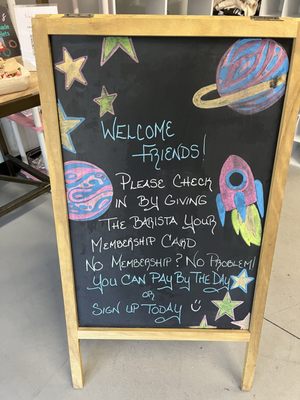 Welcome
Friends!
Please Check
in By Giving
The Barista Your
Membership Card
No Membership? No Problem!
You Can Pay By The Day
or
Sign up Today ☺